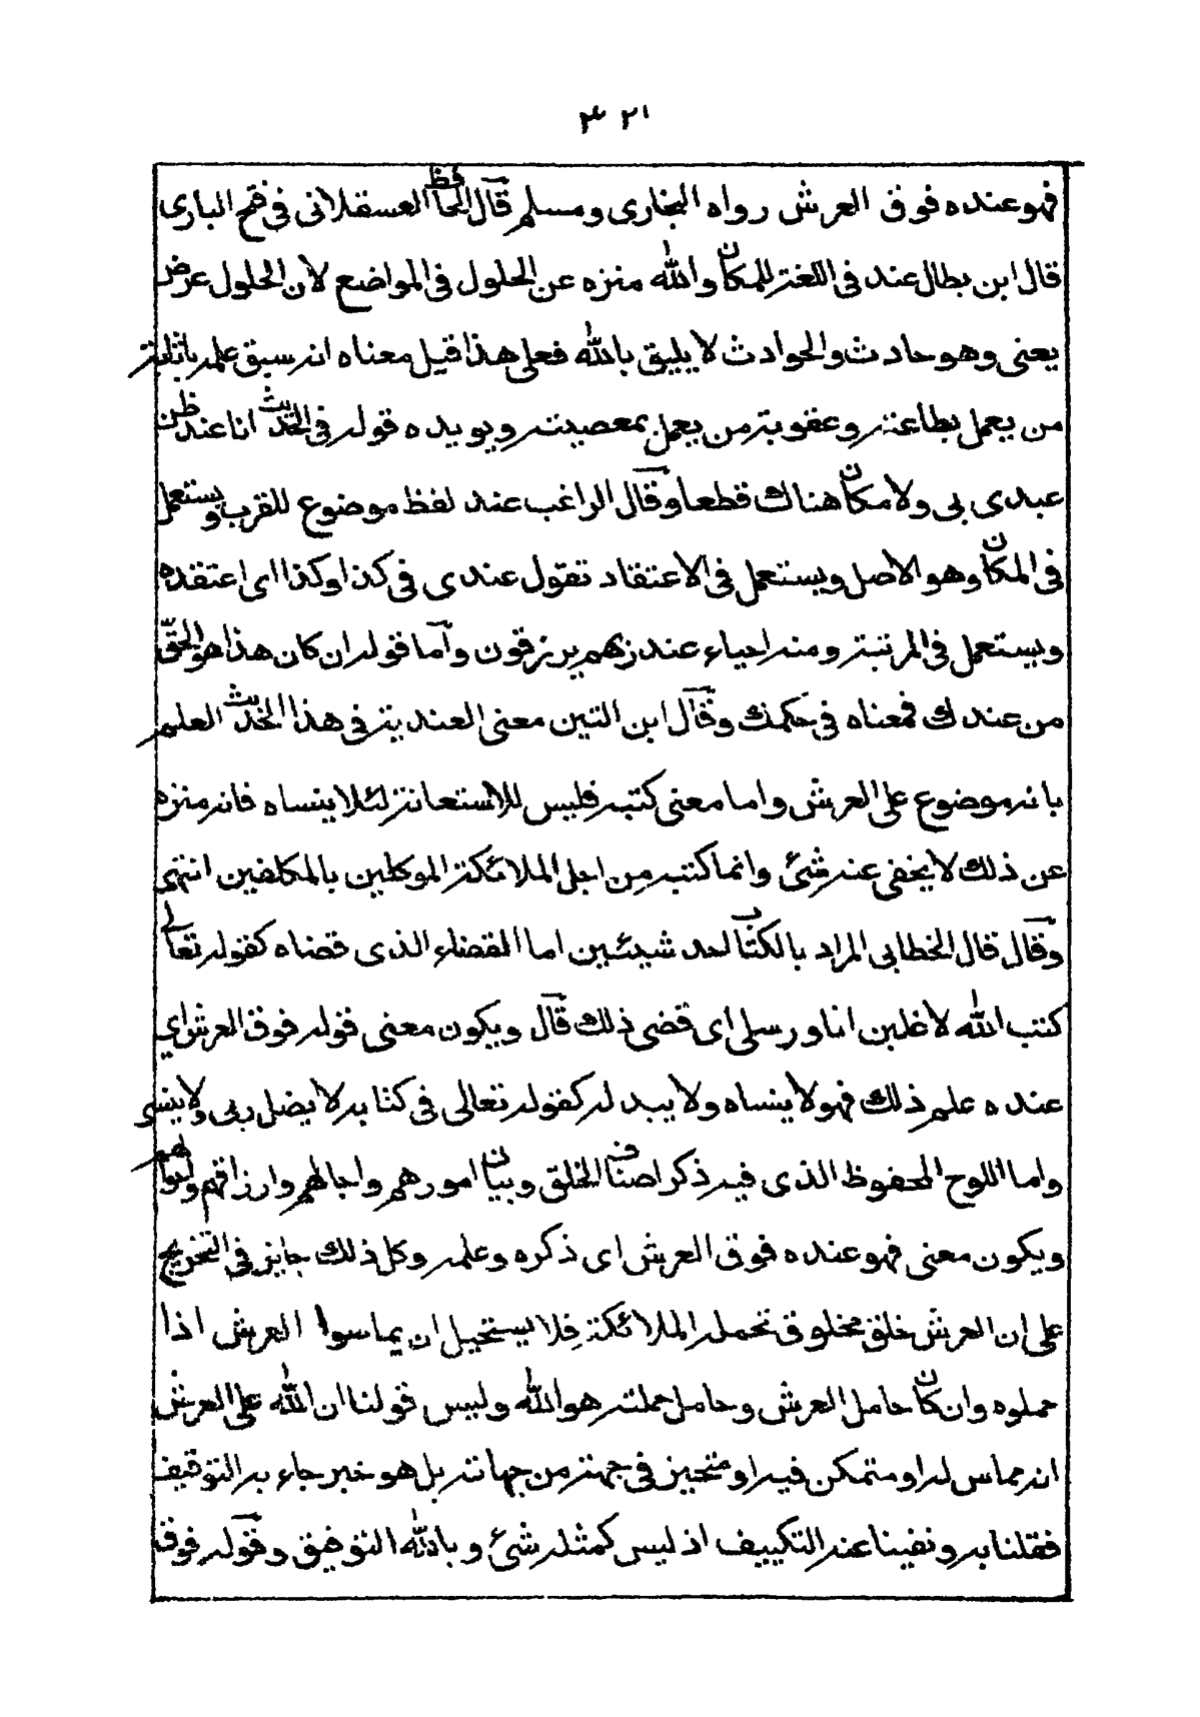 ٣٢١
فهو عنده فوق العرش رواه البخارى ومسلم قال الحافظ العسقلانى فى فتح البارى
قال ابن بطال عند فى اللغة للمكان والله منزه عن الحلول فى المواضع لان الحلول عرض
يعنى وهو حادث والحوادث لا يليق بالله فعلى هذا قيل معناه انه سبق علمه باثابة
من يعمل بطاعته وعقوبة من يعمل بمعصيته ويويده قوله فى الحديث انا عند ظن
عبدى بى ولا مكان هناك قطعا وقال الراغب عند لفظ موضوع للقرب ويستعمل
فى المكان وهو الاصل ويستعمل فى الاعتقاد تقول عندى فى كذا وكذا اى اعتقده
ويستعمل فى المرتبة ومنه احياء عند ربهم يرزقون واما قوله ان كان هذا هو الحق
من عندك فمعناه فى حكمك وقال ابن التين معنى العندية فى هذا الحديث العلم
بانه موضوع على العرش واما معنى كتبه فليس للاستعانة لئلا ينساه فانه منزه
عن ذلك لا يخفى عنه شئ وانما كتبه من اجل الملائكة الموكلين بالمكلفين انتهى
وقال قال الخطابى المراد بالكتاب احد شيئين اما القضاء الذى قضاه كقوله تعالى
كتب الله لاغلبن انا ورسلى اى قضى ذلك قال ويكون معنى قوله فوق العرش اي
عنده علم ذلك فهو لا ينساه ولا يبدله كقوله تعالى فى كتابه لا يضل ربى ولا ينسى
واما اللوح المحفوظ الذى فيه ذكر اصناف الخلق وبيان امورهم واجالهم وارزاقهم واحوالهم
ويكون معنى فهو عنده فوق العرش اى ذكره وعلمه وكل ذلك جايز فى التخريج
على ان العرش خلق مخلوق تحمله الملائكة فلا يستحيل ان يماسوا العرش اذا
حملوه وان كان حامل العرش وحامل حملته هو الله وليس قولنا ان الله على العرش
انه مماس له او متمكن فيه او متحيز فى جهة من جهاته بل هو خبر جاء به التوقيف
فقلنا به ونفينا عنه التكييف اذ ليس كمثله شئ وبالله التوفيق وقوله فوق